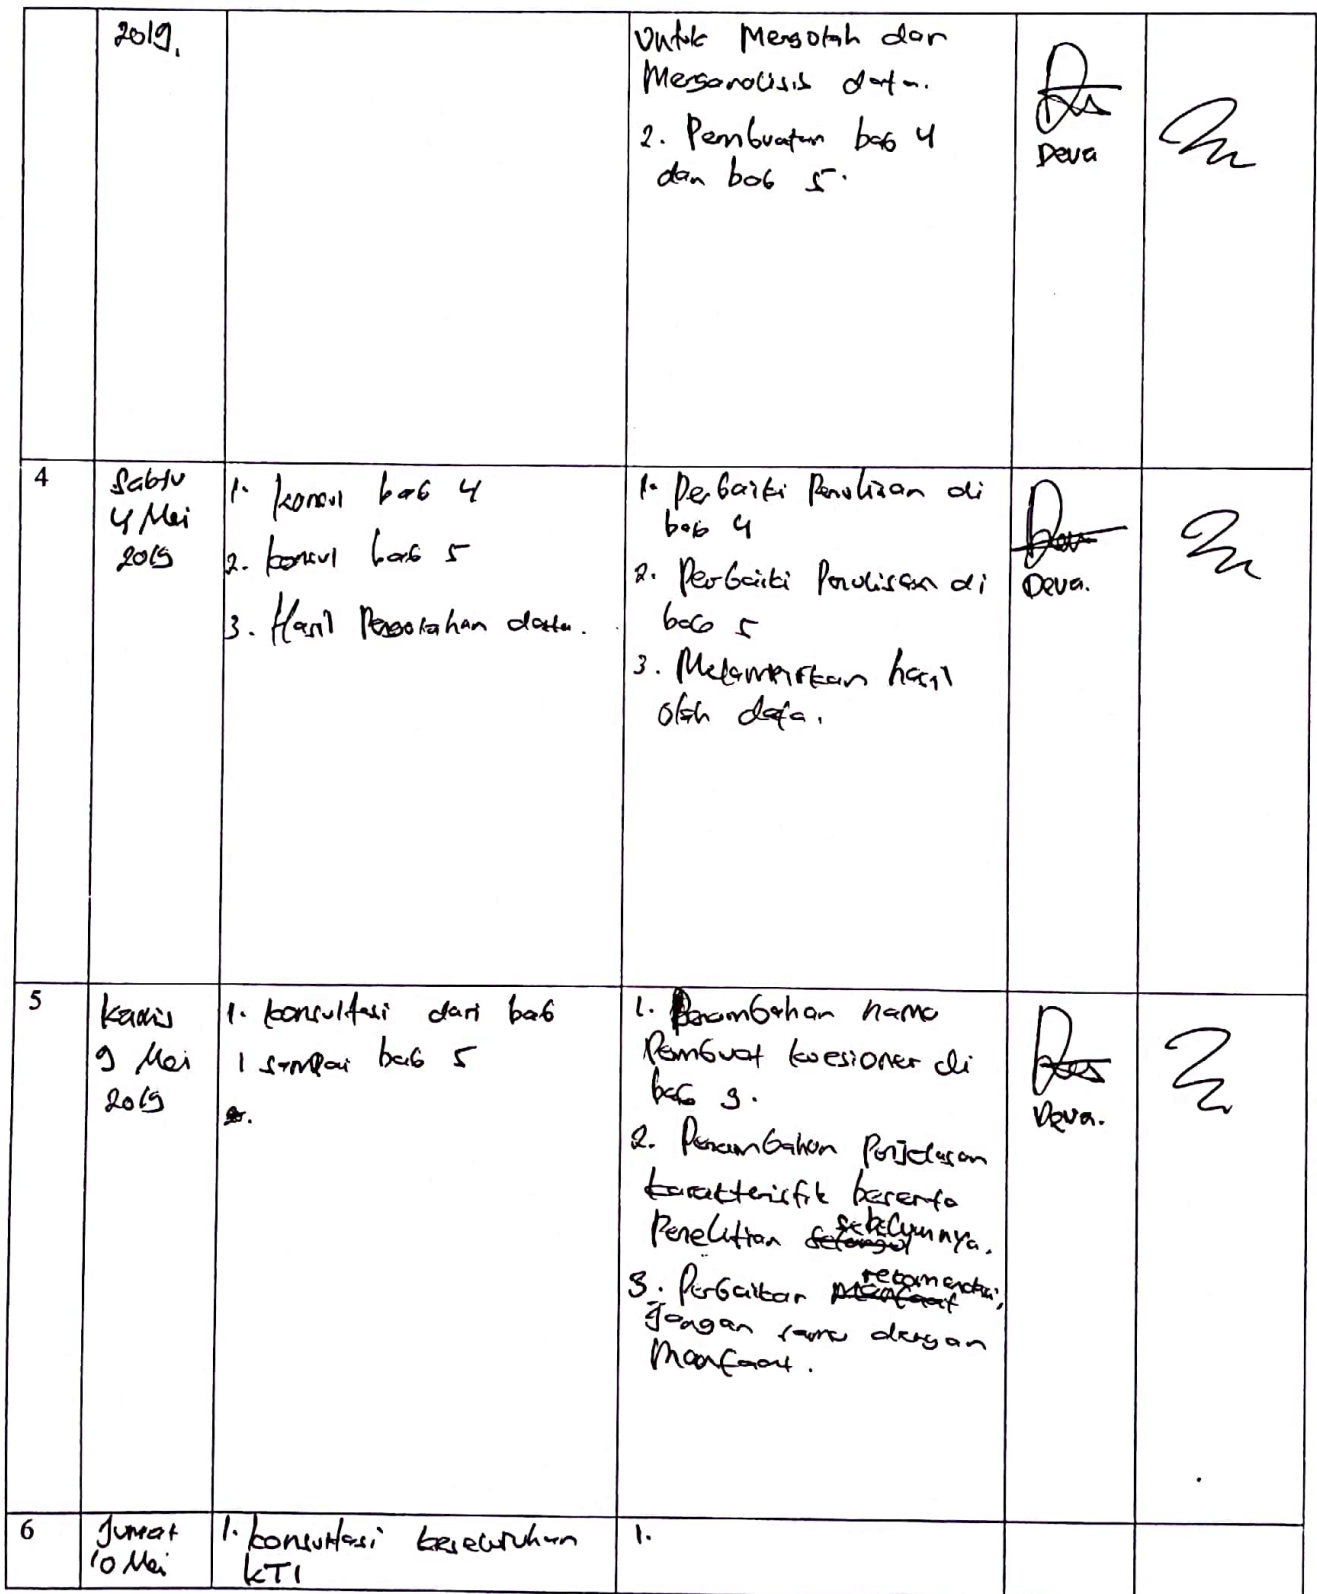 2019.
untuk Mengolah dan
Menganalisis data.
2. Pembuatan bab 4
dan bab 5.
Deva
4
Sabtu
4 Mei
2019
1. konsul bab 4
2. konsul bab 5
3. Hasil Pengolahan data.
1. Perbaiki Penulisan di
bab 4
2. Perbaiki Penulisan di
bab 5
3. Melampirkan hasil
olah data.
Deva.
5
Kamis
9 Mei
2019
1. konsultasi dari bab
1 sampai bab 5
1. Penambahan nama
Pembuat kuesioner di
bab 3.
2. Penambahan Penjelasan
karakteristik beserta
Penelitian sebelumnya.
3. Perbaikan rekomendasi,
jangan sama dengan
Manfaat.
Deva.
6
Jumat
10 Mei
1. konsultasi keseluruhan
KTI
1.